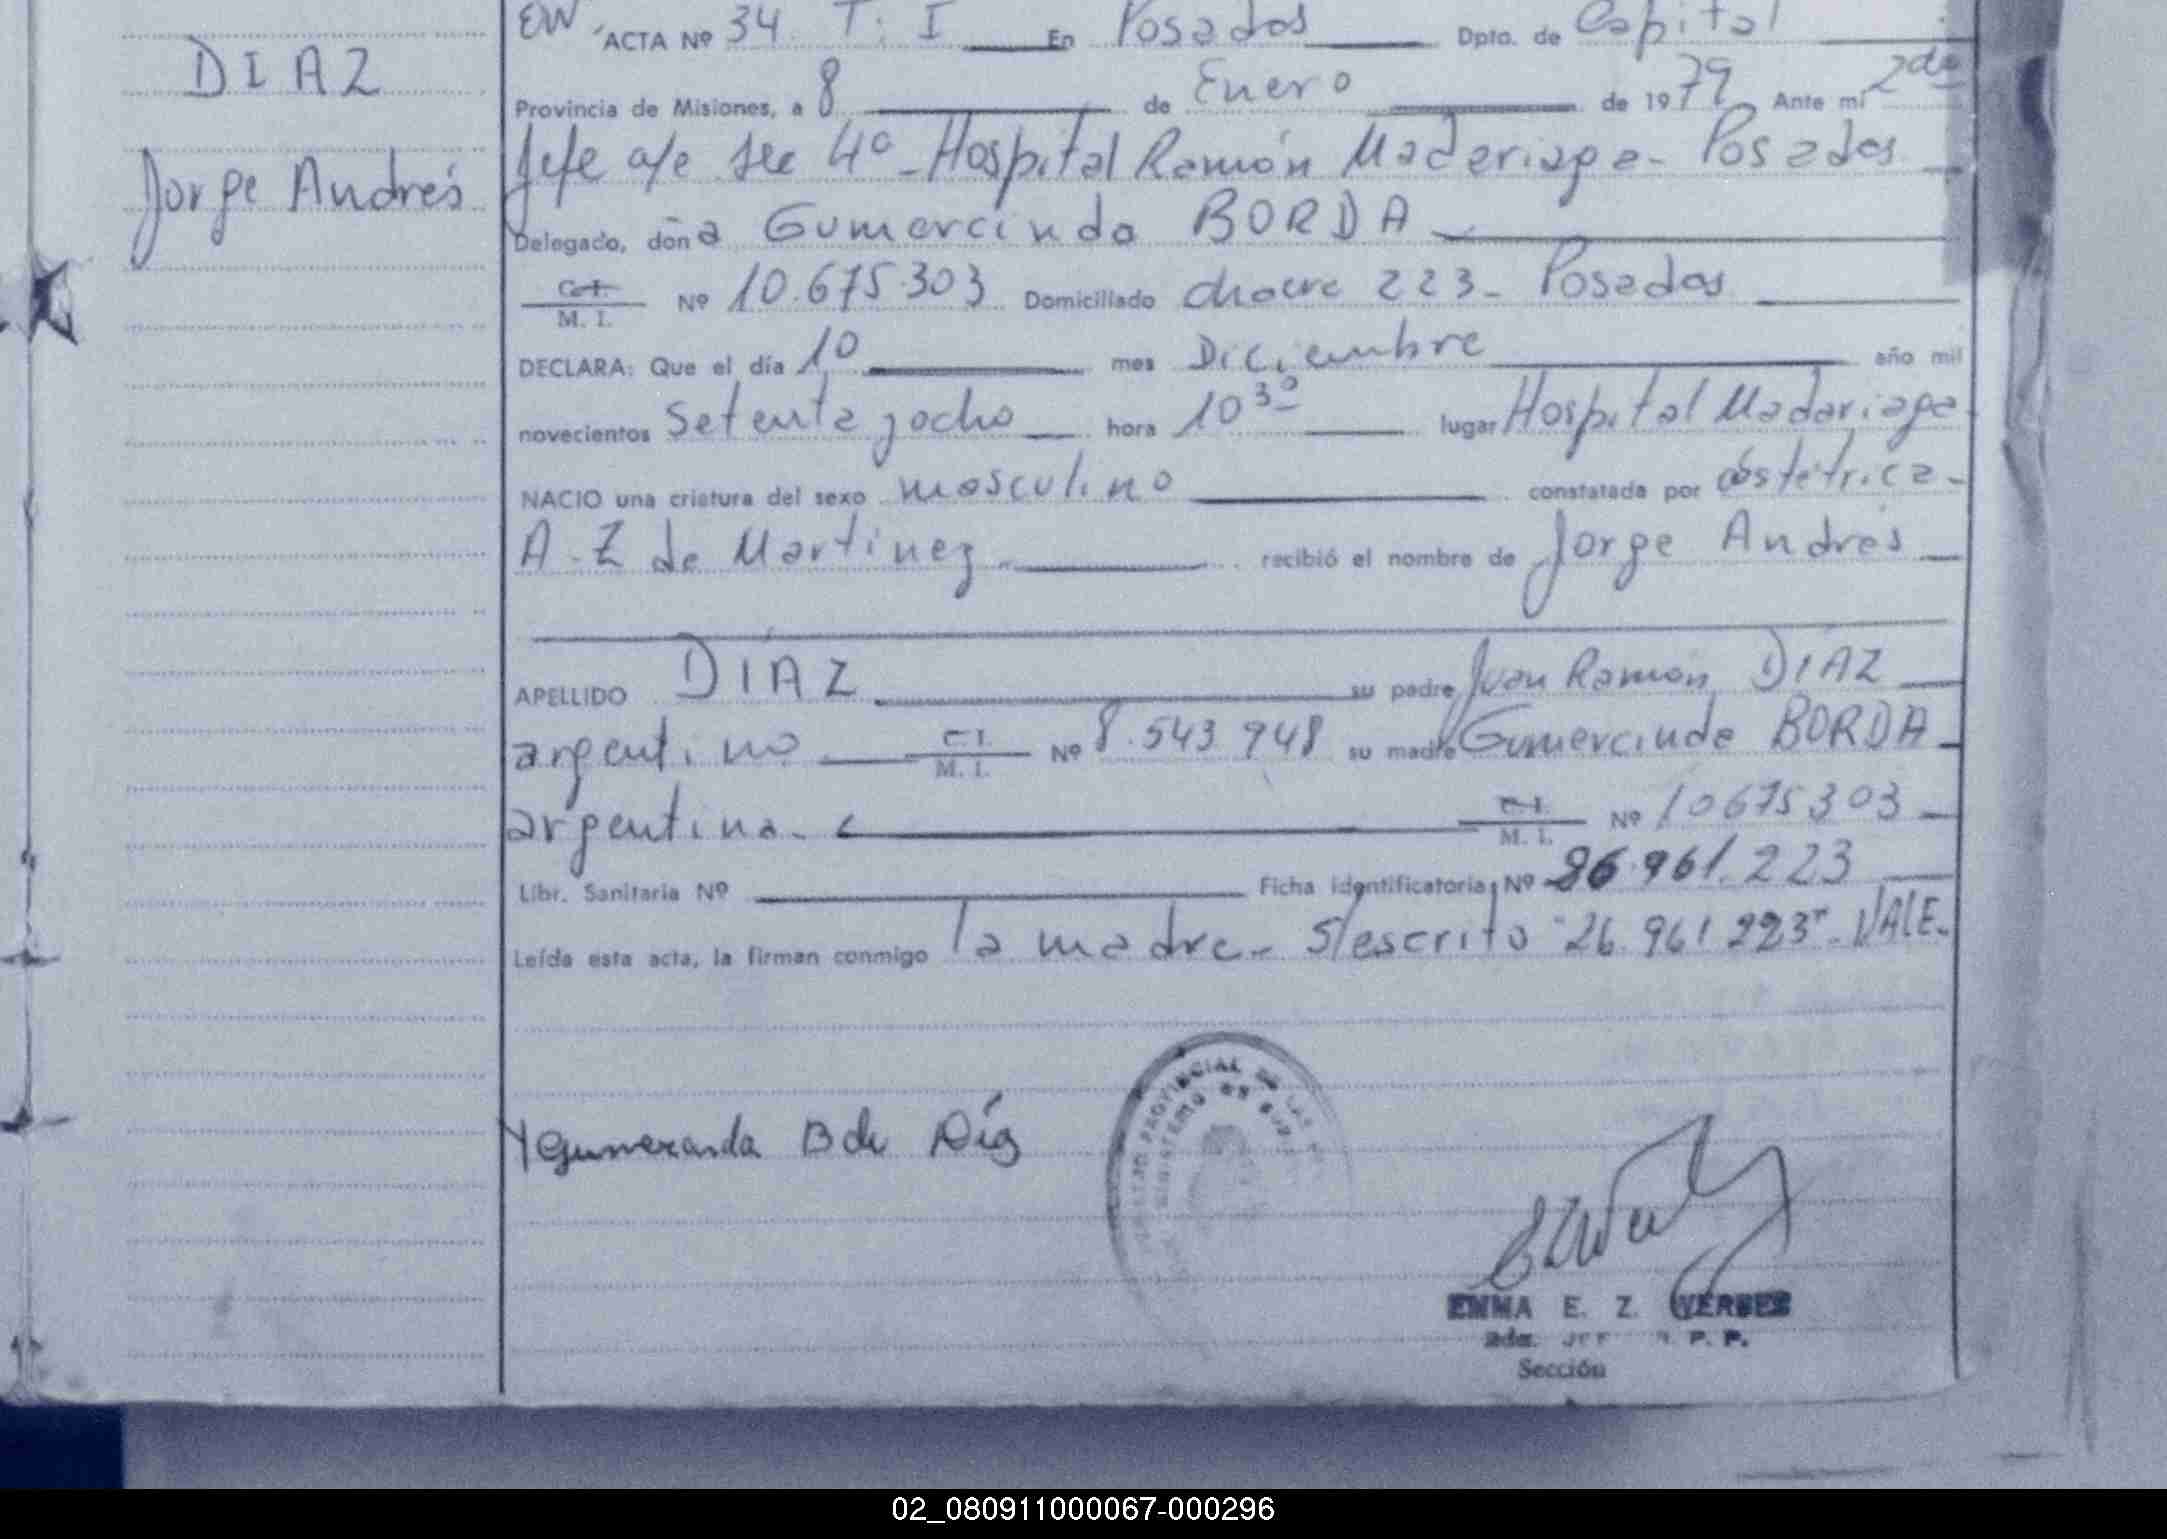 DIAZ
Jorge Andrés
EW ACTA Nº 34. T: I En Posadas Dpto. de Capital
Provincia de Misiones, a 8 de Enero de 1979 Ante mí 2da
Jefe a/e Sec 4º - Hospital Ramón Maderiaga - Posadas
Delegado, doña Gumercinda BORDA
C. I. M. I. Nº 10.675.303 Domiciliado chacra 223 - Posadas
DECLARA: Que el día 10 mes Diciembre año mil
novecientos setenta y ocho hora 10 30 lugar Hospital Madariaga
NACIO una criatura del sexo masculino constatada por obstétrica -
A - Z de Martinez recibió el nombre de Jorge Andrés
APELLIDO DÍAZ su padre Juan Ramón DÍAZ
argentino C. I. M. I. Nº 8.543.948 su madre Gumercinda BORDA
argentina - C. I. M. I. Nº 10675303
Libr. Sanitaria Nº Ficha identificatoria, Nº 26.961.223
Leída esta acta, la firman conmigo la madre - S/escrito "26.961.223" - VALE -
Gumercinda B de Díaz
PROVINCIAL DE LAS
EMMA E. Z. WERBES
2da. P. P.
Sección
02_080911000067-000296